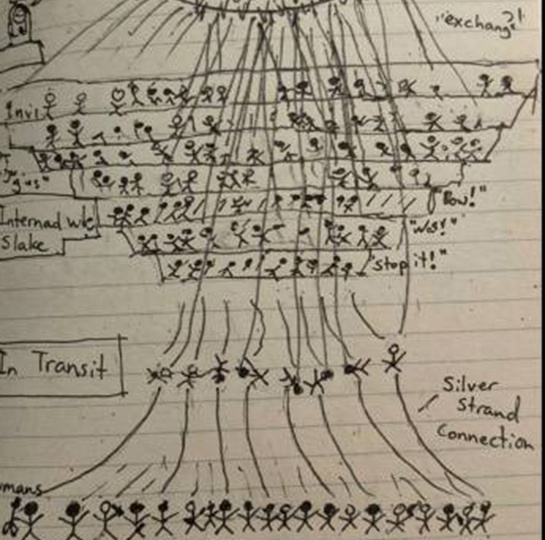 "exchang?!
Invi
"Pow!"
Internad wle
Slake
"stop it!"
In Transit
Silver
Strand
Connection
mans